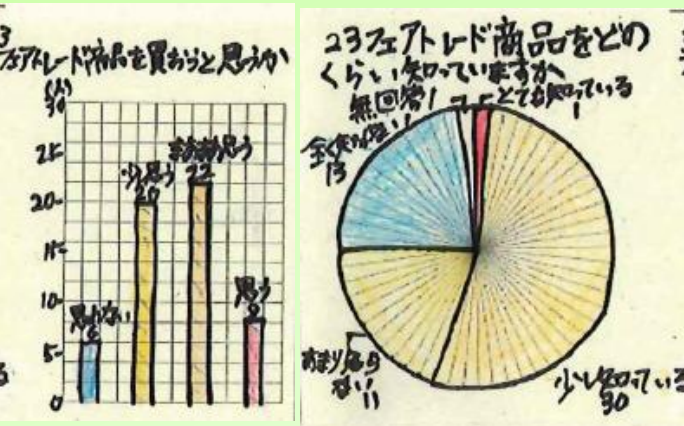 3
フェアトレード商品を買おうと思うか
(人)
30
25
20
15
10
5
0
思わない
6
少し思う
20
まあまあ思う
22
思う
23フェアトレード商品をどの
くらい知っていますか
無回答1
とても知っている
1
全く知らない
13
あまり知ら
ない
11
少し知っている
30